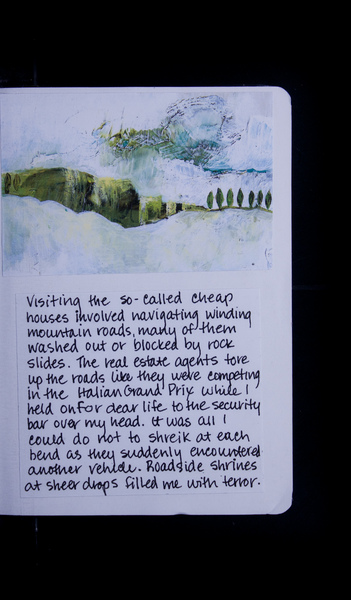 Visiting the so-called cheap
houses involved navigating winding
mountain roads, many of them
washed out or blocked by rock
slides. The real estate agents tore
up the roads like they were competing
in the Italian Grand Prix while I
held on for dear life to the security
bar over my head. It was all I
could do not to shreik at each
bend as they suddenly encountered
another vehicle. Roadside shrines
at sheer drops filled me with terror.